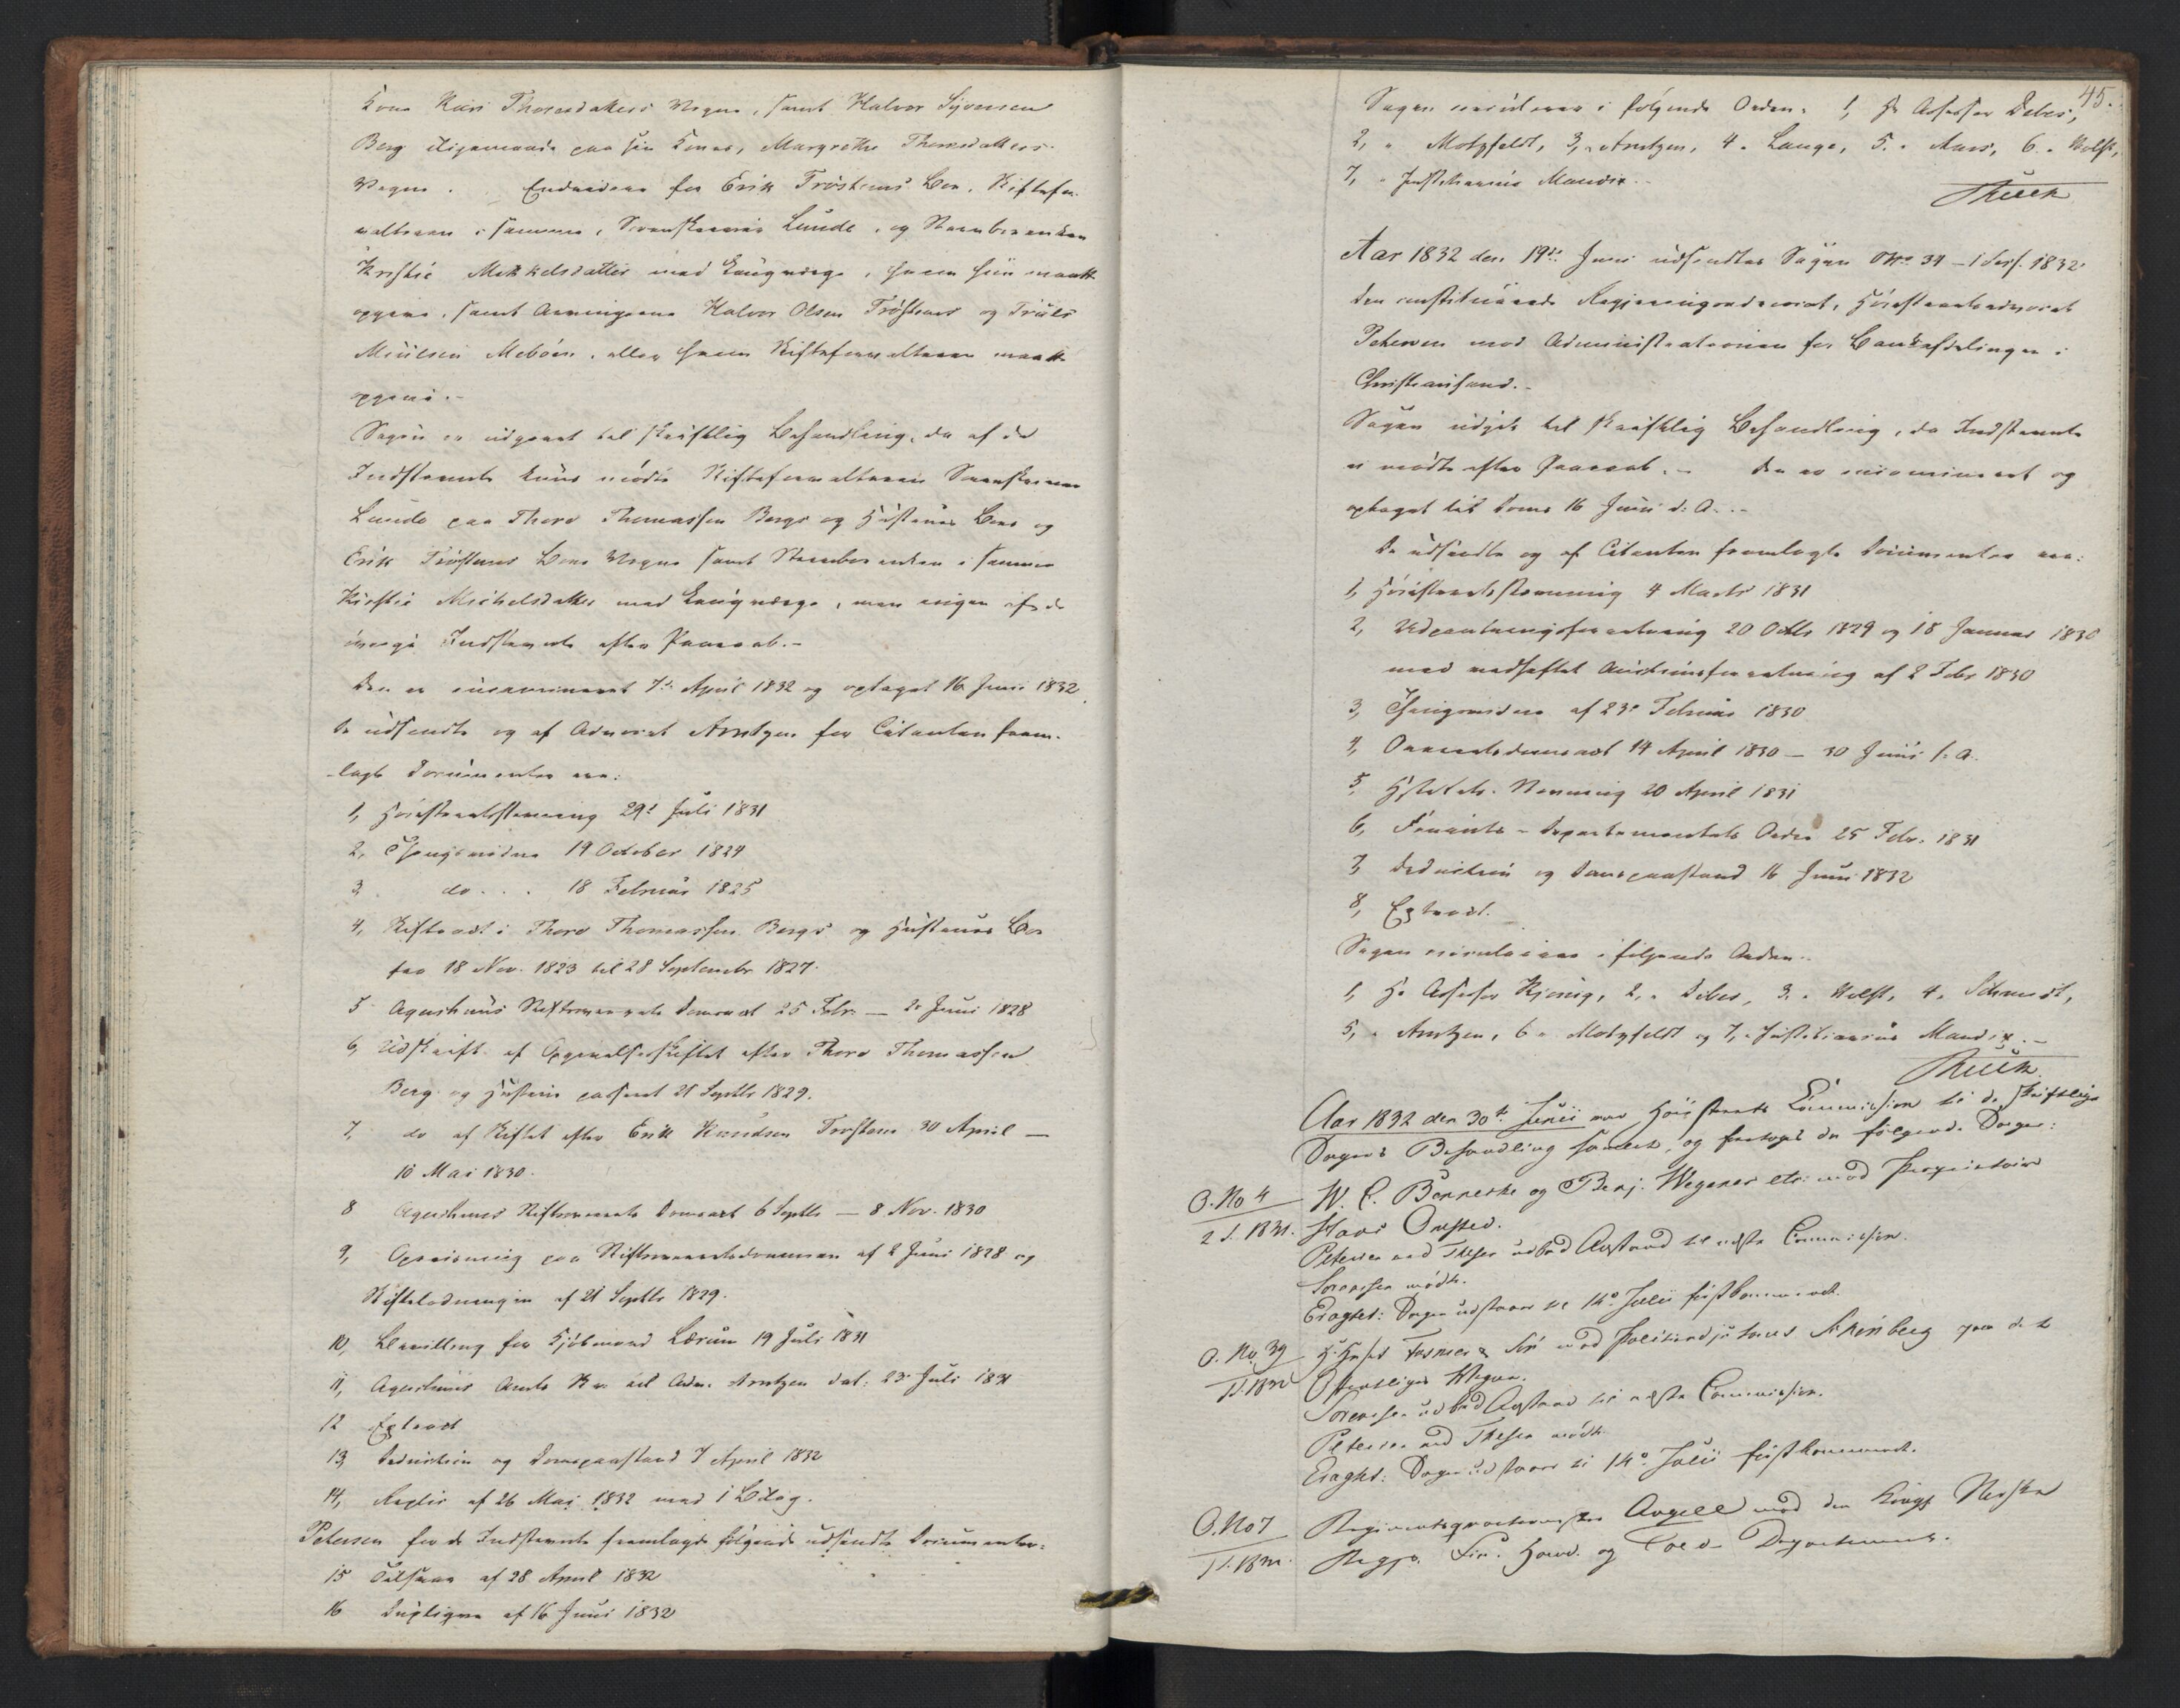 Kone Kari Thoresdatters Vegne, samt Halvor Syversen
Berg ligemaade paa sin Kones, Margrethe Thorsdatters
Vegne. Endvidere for Erik Tröstems Boe, Skiftefor-
valteren i samme, Sorenskriver Lunde, og Stervboenken
Kirstie Mikkelsdatter med Laugværge, hvem hun maatte
opgive, samt Arvingerne Halvor Olsen Tröstem og Truls
Meböen, eller hvem Skifteforvalteren maatte
opgive.-
Sagen er udgaaet til skriftlig Behandling, da af de
Indstevnte kuns mödte Skifteforvalteren Sorenskriver
Lunde paa Thore Thomassen Bergs og Hustrues Boes og
Erik Tröstems Boes Vegne samt Stervboenken i samme
Kirstie Michelsdatter med Laugværge, men ingen af de
övrige Indstevnte efter Paaraab.-
Den er incamineret 7de April 1832 og optaget 16 Juni 1832.
De udsendte og af Advocat Arntzen for Citanten frem-
lagte Documenter ere:
1, Höiesteretsstevning 29de Juli 1831
2, Thingsvidne 19 October 1824
3, do . . . 18 Februar 1825
4, Skifteact i Thore Thomassen Bergs og Hustrues Boe
fra 18 Nov. 1823 til 28 Septembr 1827.
5 Agershuus Stiftsoverrets Domsact 25 Febr. — 2 Juni 1828
6, Udskrift af Opgivelsesskiftet efter Thore Thomassen
Berg og Hustrue passeret 21 Septbr 1829.
7, do af Skiftet efter Erik Knudsen Tröstem 30 April —
10 Mai 1830.
8 Agershuus Stiftsoverrets Domsact 6 Septbr — 8 Nov. 1830
9, Opreisning paa Stiftsoverretsdommen af 2 Juni 1828 og
Skiftelodningen af 21 Septbr 1829.
10, Bevilling for Kjöbmand Lærum 19 Juli 1831
11, Agershuus Amts Skr. til Adv. Arntzen dat: 23 Juli 1831
12 Extract
13, Deduction og Domspaastand 7 April 1832
14, Replic af 26 Mai 1832 med 1 Bilag.
Petersen for de Indstevnte fremlagde fölgende udsendte Documenter:
15 Tilsvar af 28 April 1832
16 Dupliqve af 16 Juni 1832
45.
Sagen circulerer i fölgende Orden: 1, Hr Assessor Debes,
2, " Motzfeldt, 3, " Arntzen, 4 " Lange, 5. " Aars, 6. " Wulfs,
7, " Justitiarius Mandix.-
Aar 1832 den 19de Juni udsendtes Sagen No 34 – 1 Sess. 1832
den constituerede Regjeringsadvocat, Höiesteretsadvocat
Petersen mod Administrationen for Bankafdelingen i
Christiansand.-
Sagen udgik til skriftlig Behandling, da Indstevnte
ei mödte efter Paaraab.- Den er incamineret og
optaget til Doms 16 Juni d: A.-
De udsendte og af Citanten fremlagte Documenter ere:
1, Höiesteretsstevning 4 Marts 1831
2, Udpantningsforretning 20 Octbr 1829 og 18 Januar 1830
med vedheftet Auctionsforretning af 2 Febr 1830
3, Thingsvidne af 23de Februar 1830
4, Overretsdomsact 14 April 1830 — 30 Juni s: A.
5, Höiesterets. Stevning 20 April 1831
6, Finants-Departementets Ordre 25 Febr. 1831
7, Deduction og Domspaastand 16 Juni 1832
8, Extract.
Sagen circulerer i fölgende Orden:
1, Hr Assessor Kjönig, 2, " Debes, 3. " Wulfs, 4, " Schmidt,
5, " Arntzen, 6 " Motzfeldt og 7, " Justitiarius Mandix.-
Aar 1832 den 30te Junii var Höiesterets Commission til de skriftlige
Sagers Behandling samlet, og foretoges da fölgende Sager:
O. No 4 W. C. Bonneske og Benj. Wegener etc: mod Proprietair
2 S. 1831. Hans Onsted.
Petersen ved Thesen udbad Anstand til næste Commission.
Sörensen mödte.
Eragtet: Sagen udstaaer til 14de Julii förstkommende.
O. No 39 Fosmer & Sön mod Politiadjutant Steinberg paa det
1 S. 1832 Offentliges Vegne.
Sörensen udbad Anstand til næste Commission.
Petersen ved Thesen mödte
Eragtet: Sagen udstaaer til 14de Julii förstkommende.
O. No 7 Regimentsqvarteermester Angell mod den Kongl Norske
1 S. 1832. Regjs. Fin. Hand. og Told Departement.